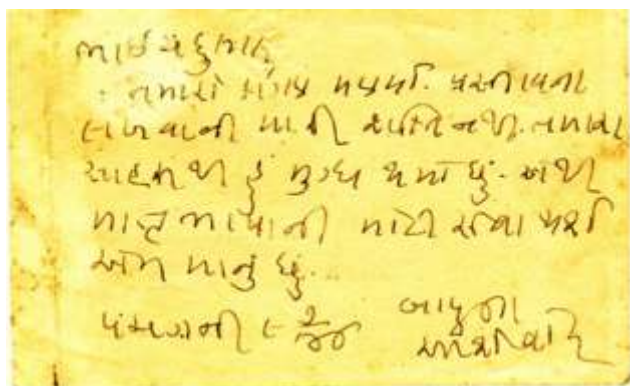 ભાઈ
તમારો સંગ્રહ મળ્યો. પ્રસ્તાવના
લખવાની મારી શક્તિ નથી. તમારા
સાહસથી હું મુગ્ધ થયો છું. એથી
માતૃભાષાની મોટી સેવા થશે
એમ માનું છું.
પંચગની બાપુના
આશીર્વાદ